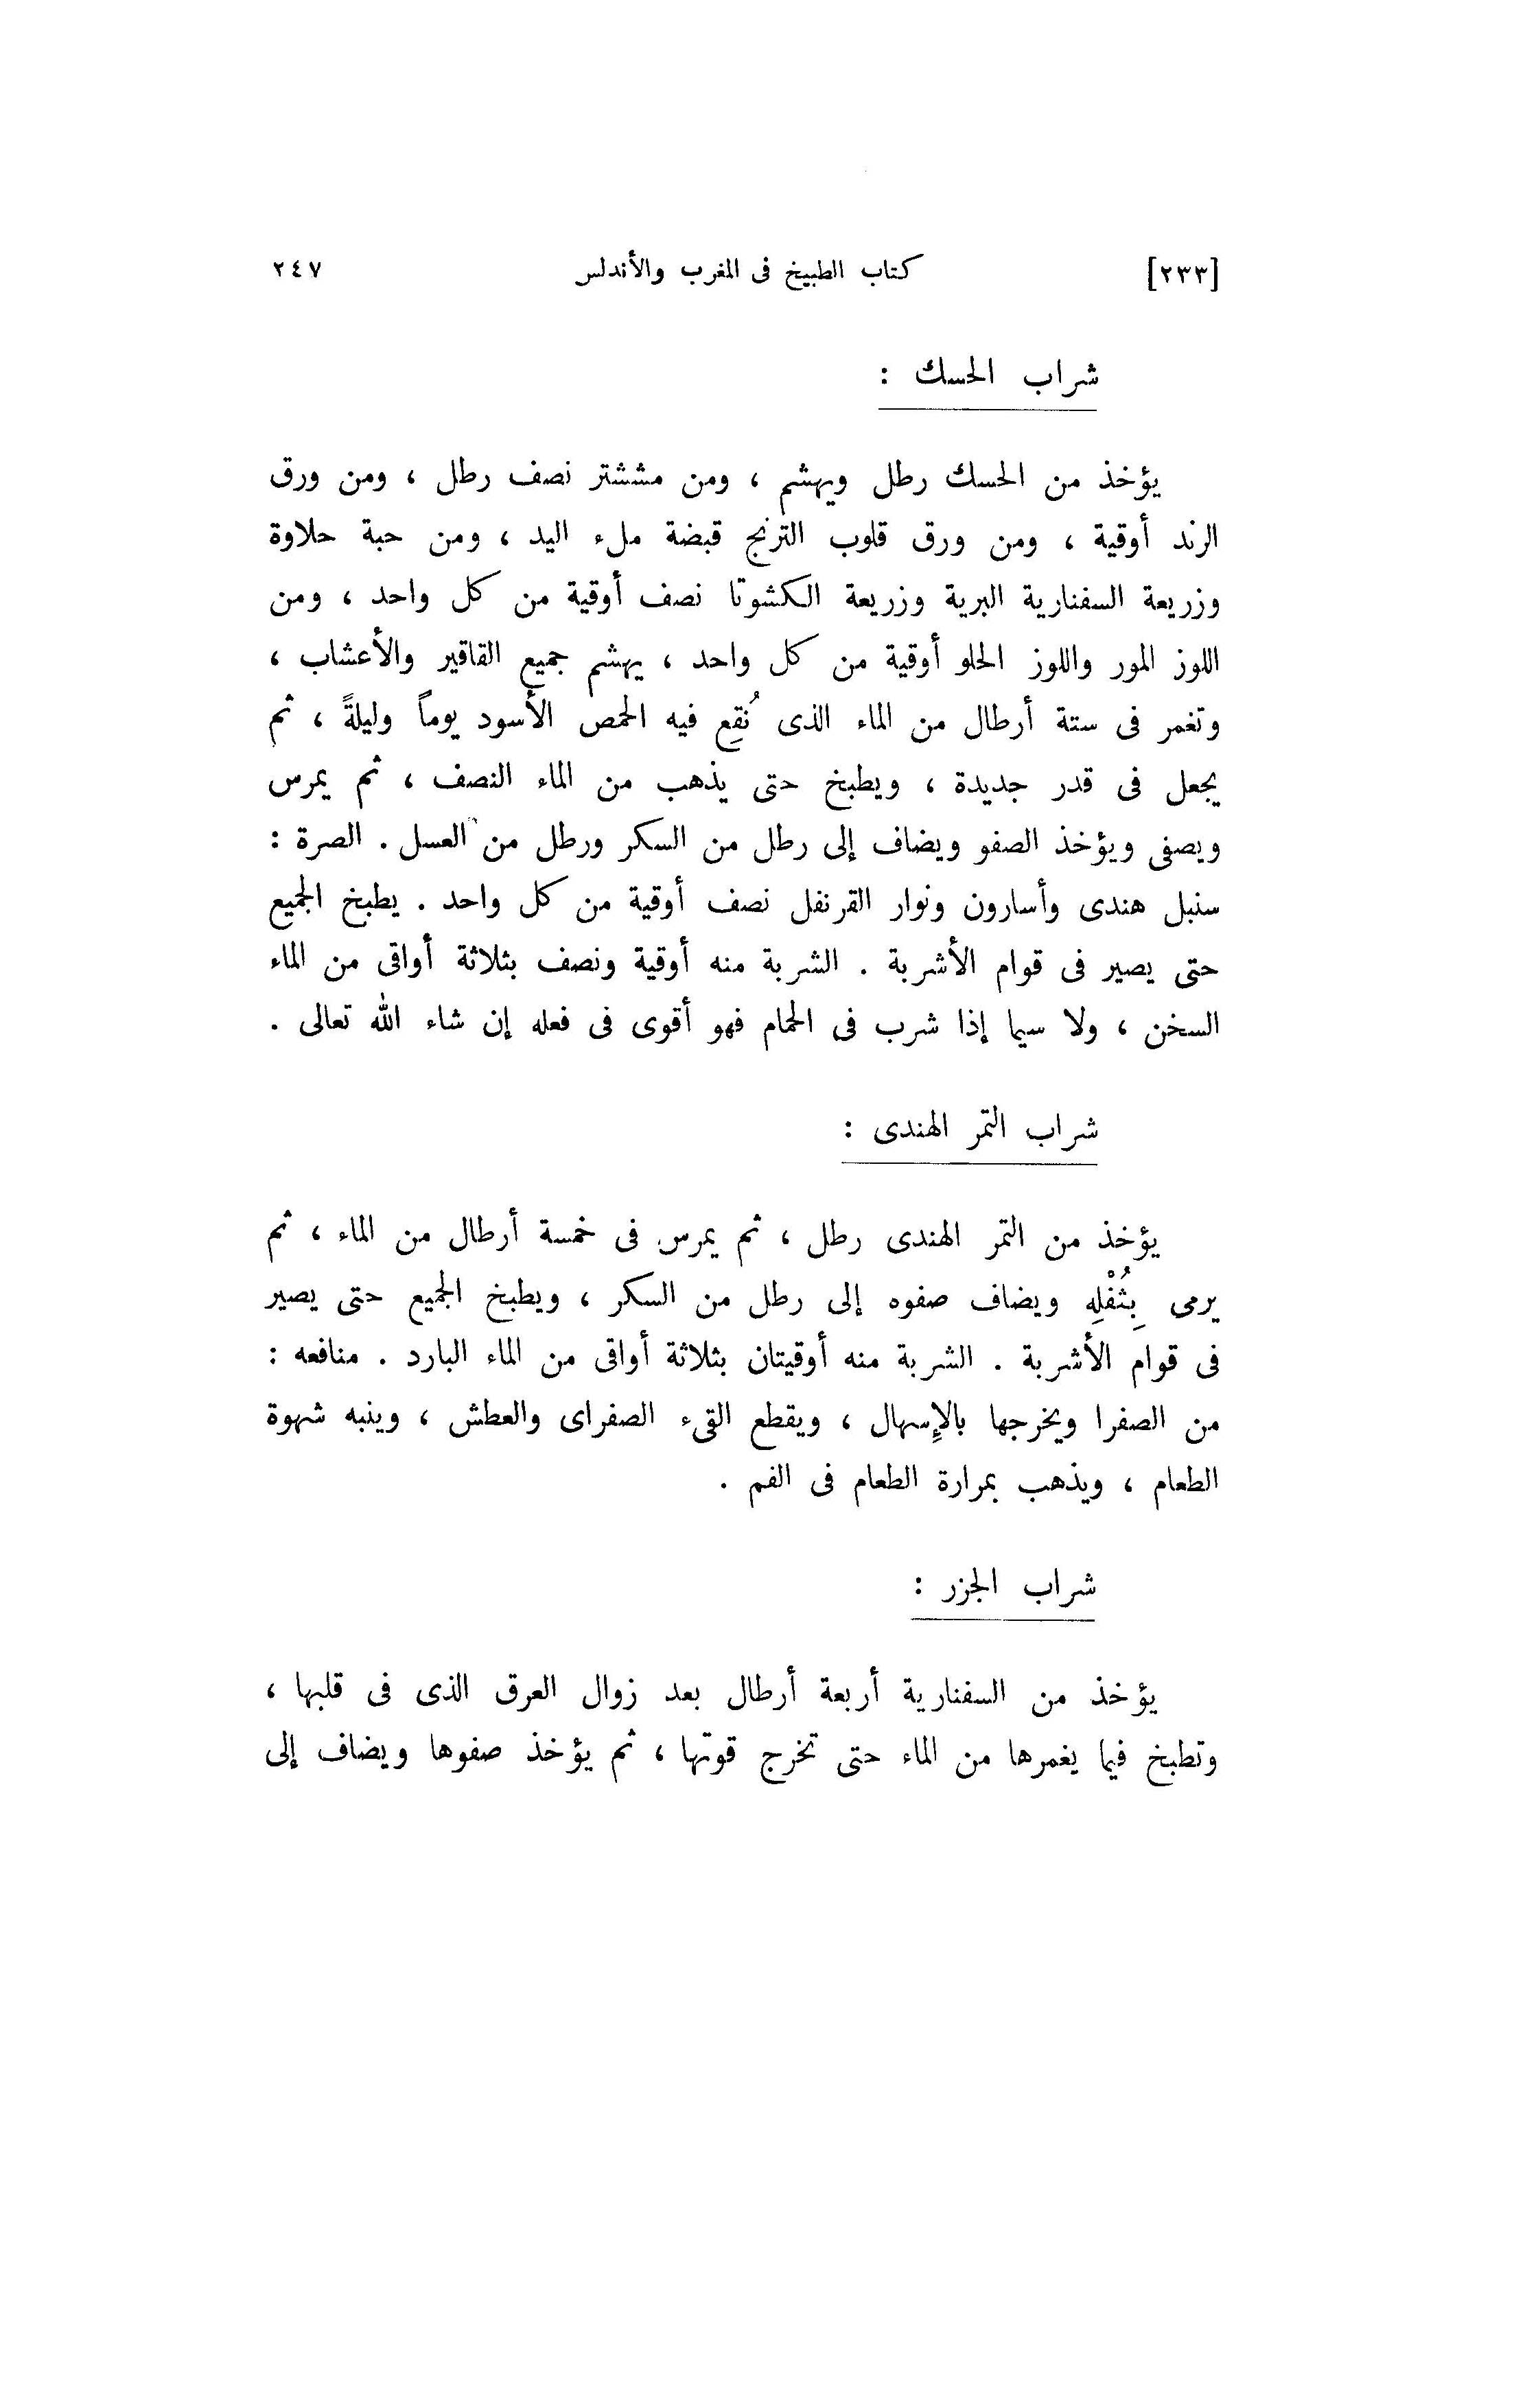 [٢٣٣] كتاب الطبيخ فى المغرب والأندلس ٢٤٧
شراب الحسك :
يؤخذ من الحسك رطل ويهشم ، ومن مششتر نصف رطل ، ومن ورق
الرند أوقية ، ومن ورق قلوب الترنج قبضة ملء اليد ، ومن حبة حلاوة
وزريعة السفنارية البرية وزريعة الكشوتا نصف أوقية من كل واحد ، ومن
اللوز المور واللوز الحلو أوقية من كل واحد ، يهشم جميع القاقير والأعشاب ،
وتغمر فى ستة أرطال من الماء الذى نُقِع فيه الحمص الأسود يوماً وليلةً ، ثم
يجعل فى قدر جديدة ، ويطبخ حتى يذهب من الماء النصف ، ثم يمرس
ويصفى ويؤخذ الصفو ويضاف إلى رطل من السكر ورطل من العسل . الصرة :
سنبل هندى وأسارون ونوار القرنفل نصف أوقية من كل واحد . يطبخ الجميع
حتى يصير فى قوام الأشربة . الشربة منه أوقية ونصف بثلاثة أواقى من الماء
السخن ، ولا سيما إذا شرب فى الحمام فهو أقوى فى فعله إن شاء الله تعالى .
شراب التمر الهندى :
يؤخذ من التمر الهندى رطل ، ثم يمرس فى خمسة أرطال من الماء ، ثم
يرمى بِثُفْلِه ويضاف صفوه إلى رطل من السكر ، ويطبخ الجميع حتى يصير
فى قوام الأشربة . الشربة منه أوقيتان بثلاثة أواقى من الماء البارد . منافعه :
من الصفرا ويخرجها بالإسهال ، ويقطع القىء الصفراى والعطش ، وينبه شهوة
الطعام ، ويذهب بمرارة الطعام فى الفم .
شراب الجزر :
يؤخذ من السفنارية أربعة أرطال بعد زوال العرق الذى فى قلبها ،
وتطبخ فيما يغمرها من الماء حتى تخرج قوتها ، ثم يؤخذ صفوها ويضاف إلى